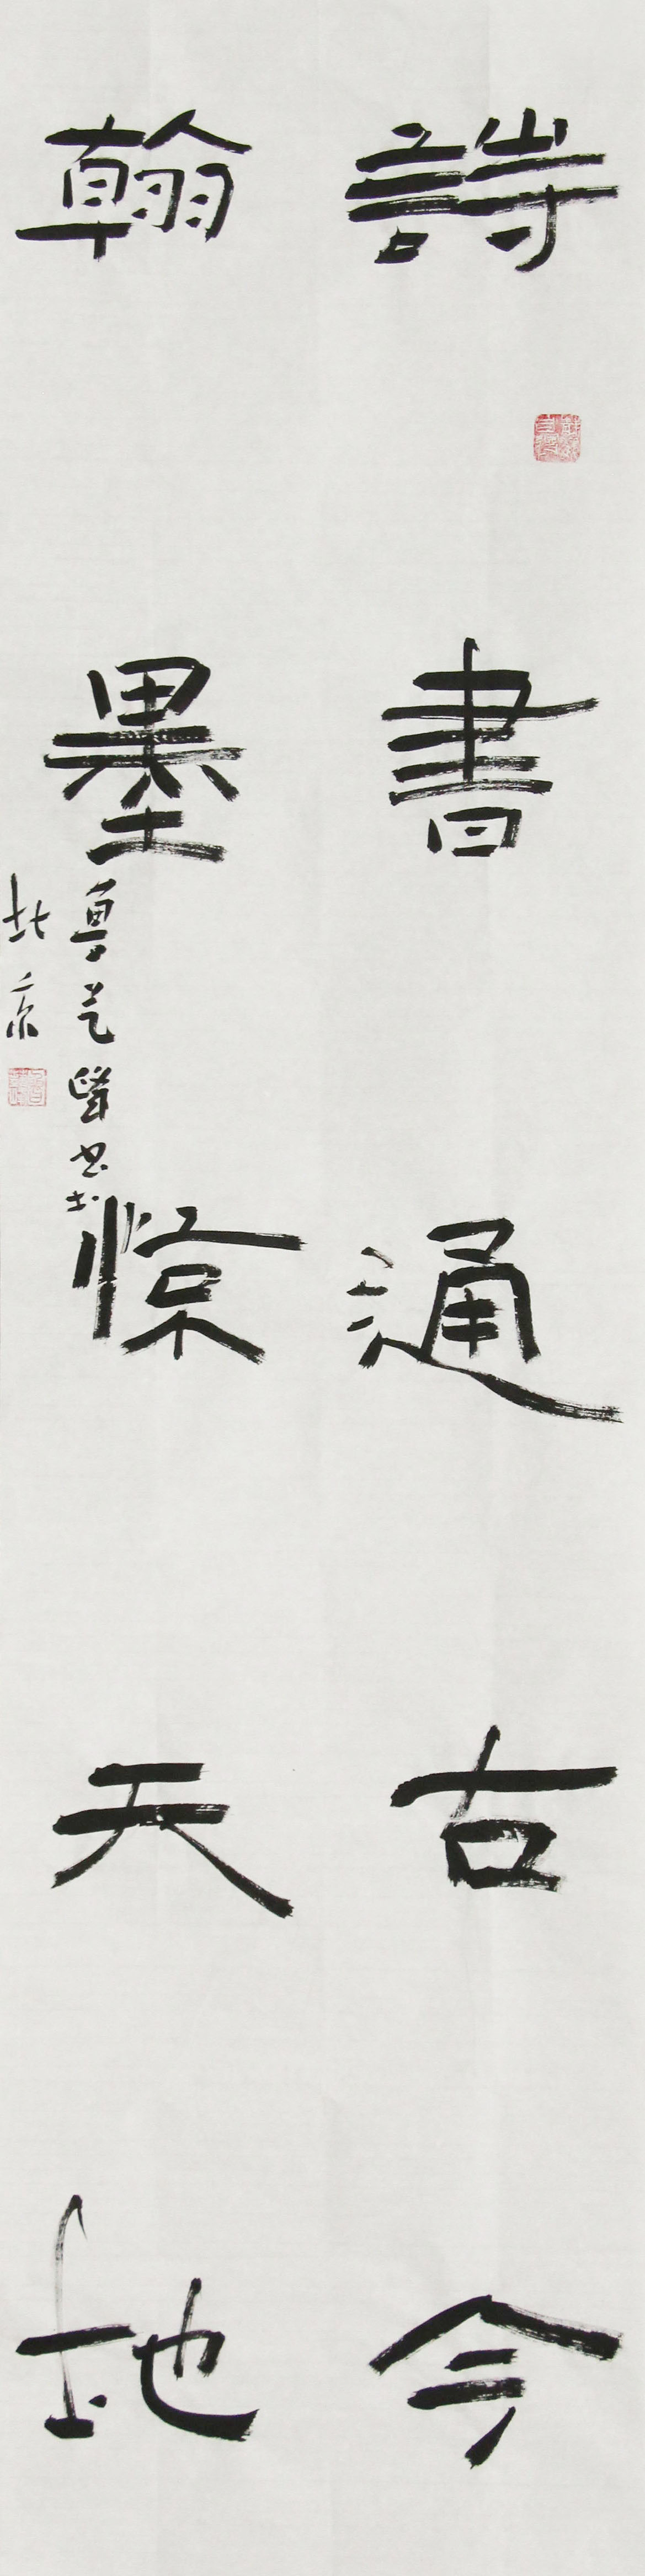 詩書通古今
翰墨惊天地
书于
北京